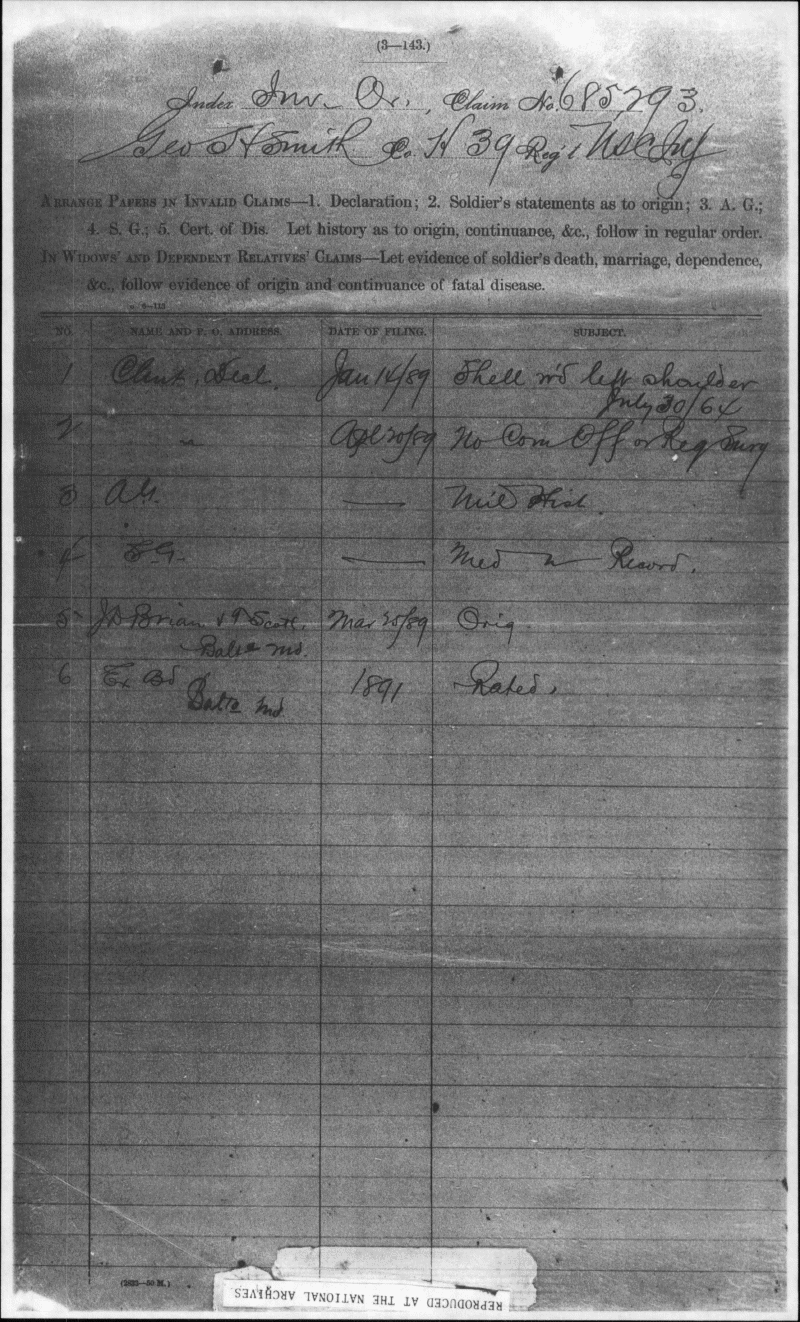 (3—143.)
Index Inv. Or., Claim No. 685293.
Geo H Smith Co. H 39 Reg't USC Inf
Arrange Papers in Invalid Claims—1. Declaration; 2. Soldier's statements as to origin; 3. A. G.;
4. S. G.; 5. Cert. of Dis. Let history as to origin, continuance, &c., follow in regular order.
In Widows' and Dependent Relatives' Claims—Let evidence of soldier's death, marriage, dependence,
&c., follow evidence of origin and continuance of fatal disease.
6—113
NO. NAME AND P. O. ADDRESS. DATE OF FILING. SUBJECT.
1 Clmt. Decl. Jan 14/89 Shell w'd left shoulder
July 30/64
2 " Apl 20/89 No Com Off or Reg Surg
3 A.G. — Mil Hist.
4 S.G. — Med " Record.
5 J D Brian & T Scott. Mar 25/89 Orig
Balto Md.
6 Ex Bd 1891 Rated.
Balto Md
(2825—50 M.)
REPRODUCED AT THE NATIONAL ARCHIVES